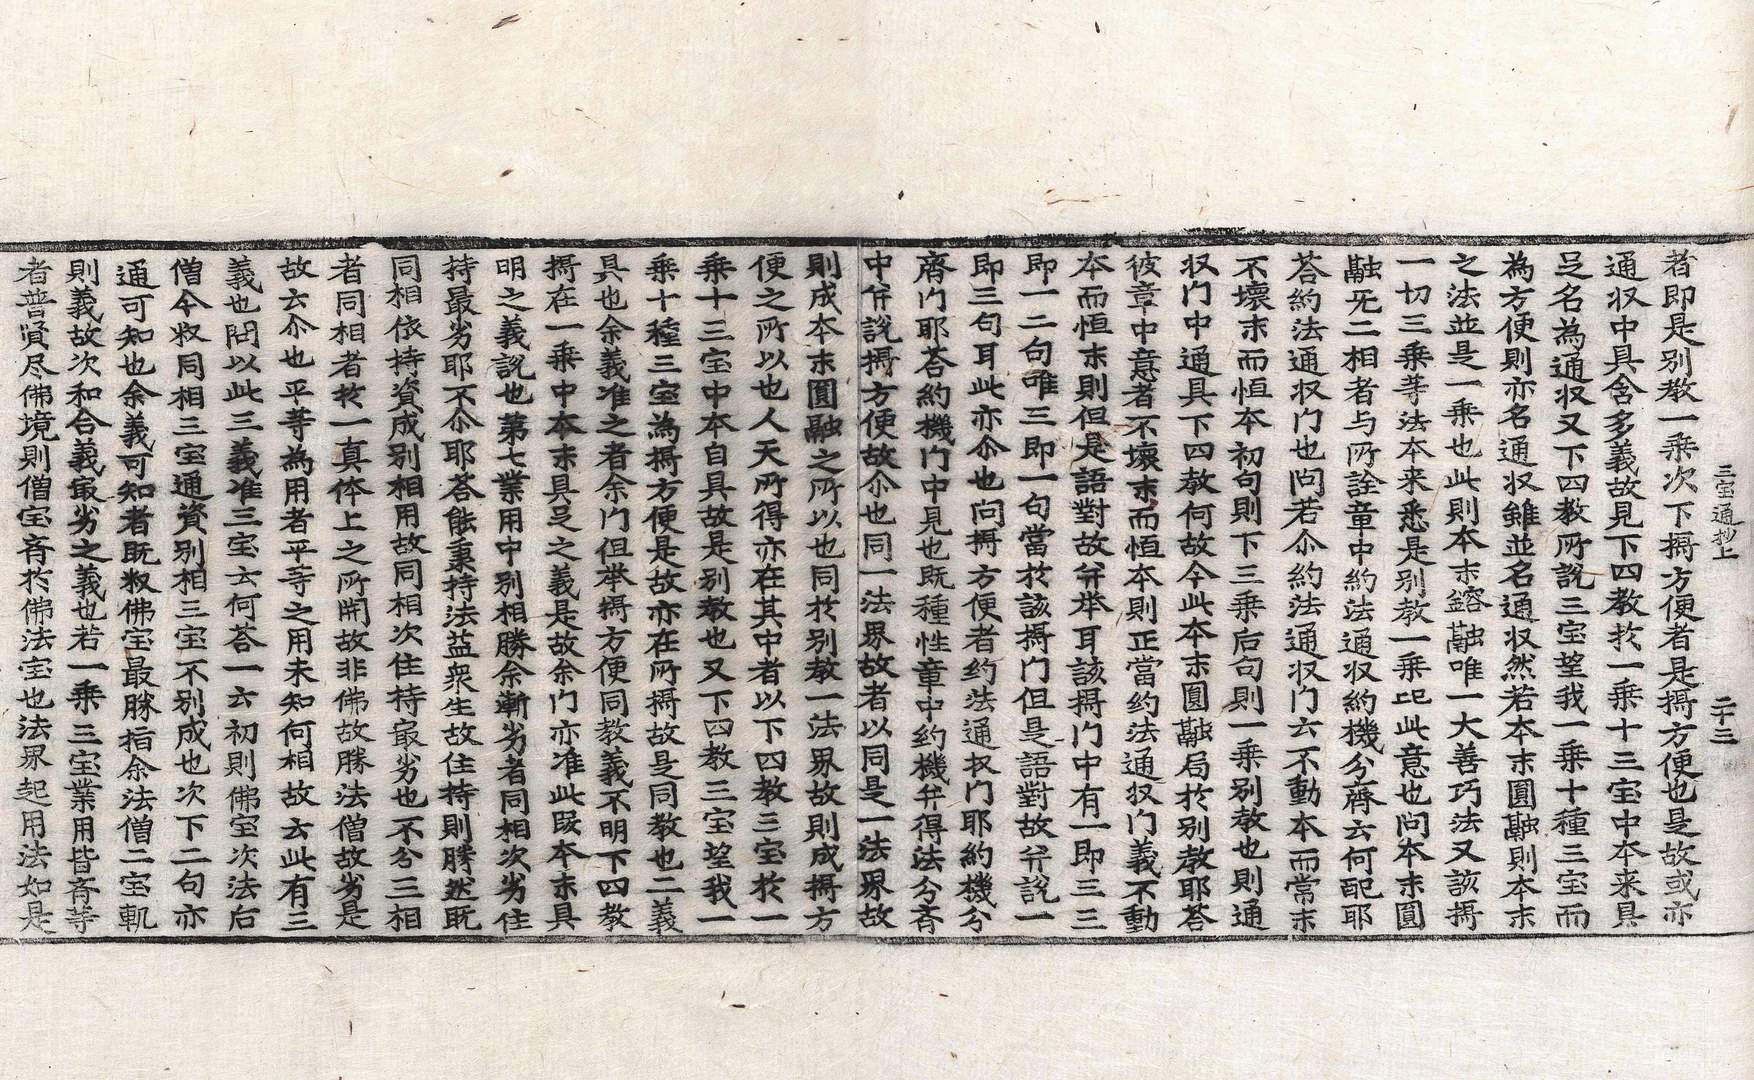 三宝通抄上　二十三
者即是別教一乗次下攝方便者是攝方便也是故或亦
通収中具含多義故見下四教扵一乗十三宝中本来具
足名為通収又下四教所説三宝望我一乗十種三宝而
為方便則亦名通収雖並名通収然若本末圓融則本末
之法並是一乗也此則本末鎔融唯一大善巧法又該攝
一切三乗等法本来悉是別教一乗此意也問本末圓
融无二相者与所詮章中約法通収約機分齊云何配耶
荅約法通収門也問若尒約法通収門云不動本而常末
不壊末而恒本初句則下三乗后句則一乗別教也則通
収門中通具下四教何故今此本末圓融局扵別教耶荅
彼章中意者不壊末而恒本則正當约法通収門義不動
本而恒末則但是語對故并举耳該攝門中有一即三三
即一二句唯三即一句當扵該攝門但是語對故并説一
即三句耳此亦尒也问攝方便者约法通収门耶约機分
齊门耶荅约機门中見也既種性章中约機并得法分斉
中并說攝方便故尒也同一法界故者以同是一法界故
則成本末圓融之所以也同扵別教一法界故則成攝方
便之所以也人天所得亦在其中者以下四教三宝扵一
乗十三宝中本自具故是別教也又下四教三宝望我一
乗十種三宝為攝方便是故亦在所攝故是同教也二義
具也余義准之者余门但举攝方便同教義不明下四教
攝在一乗中本末具足之義是故余门亦准此叚本末具
明之義說也第七業用中別相勝余漸劣者同相次劣住
持最劣耶不尒耶荅能秉持法益衆生故住持則勝然既
同相依持資成別相用故同相次住持㝡劣也不分三相
者同相者扵一真体上之所開故非佛故勝法僧故劣是
故云尒也平等為用者平等之用未知何相故云此有三
義也問以此三義准三宝云何荅一云初則佛宝次法后
僧今叙同相三宝通資別相三宝不別成也次下二句亦
通可知也余義可知者既叙佛宝最勝指余法僧二宝軌
則義故次和合義㝡劣之義也若一乗三宝業用皆斉等
者普贤尽佛境則僧宝斉扵佛法宝也法界起用法如是